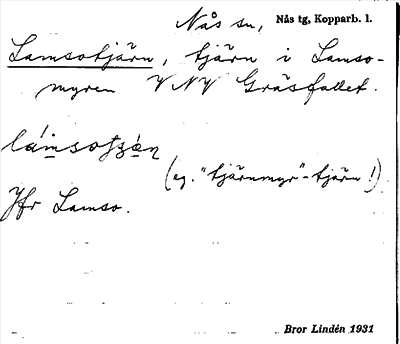 Nås sn, Nås tg, Kopparb. l.
Lamsotjärn, tjärn i Lamso-
myren VNV Gräsfallet.
(eg. "tjärnmyr"-tjärn!)
Jfr Lamso.
Bror Lindén 1931